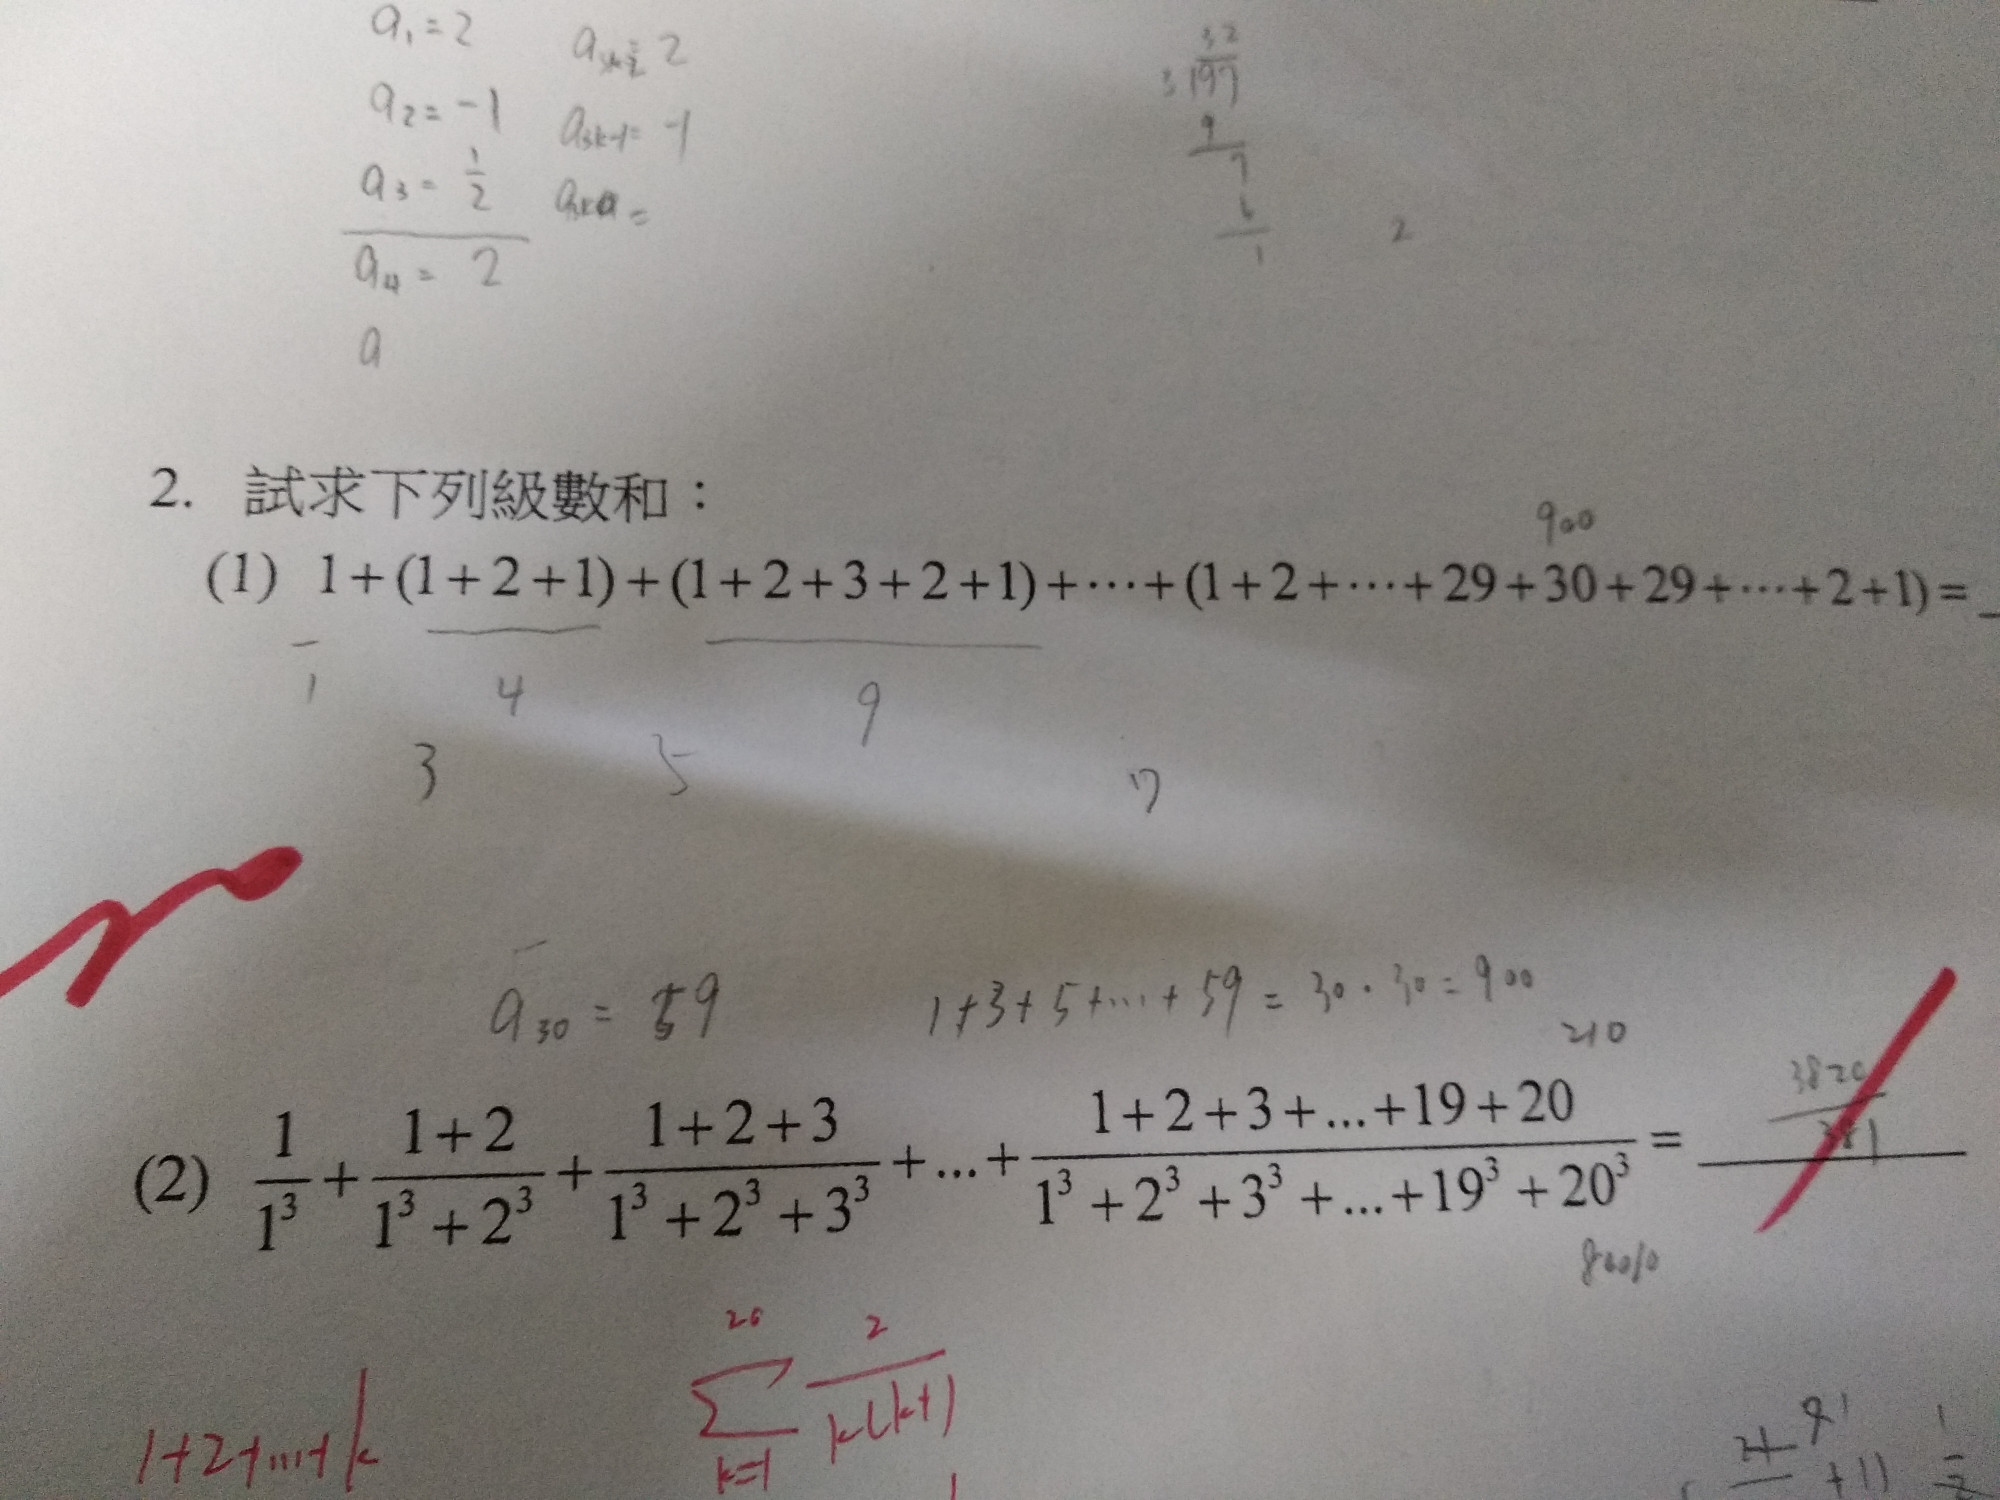 a₁ = 2
a₂ = -1 a₃ₖ₋₁ = -1
a₃ = 1/2
a₄ = 2
a
32
3 197
9
7
6
1
2
2. 試求下列級數和：
900
(1) 1+(1+2+1)+(1+2+3+2+1)+⋯+(1+2+⋯+29+30+29+⋯+2+1)=
1 4 9
3 5 7
a₃₀ = 59 1+3+5+⋯+59 = 30·30 = 900
210
(2) 1/1³ + (1+2)/(1³+2³) + (1+2+3)/(1³+2³+3³) +...+ (1+2+3+...+19+20)/(1³+2³+3³+...+19³+20³) = 3820/381
1+2+⋯+k ∑ₖ₌₁²⁰ 2/(k(k+1))